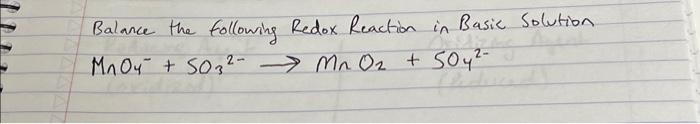 Balance the following Redox Reaction in Basic Solution
MnO₄⁻ + SO₃²⁻ → MnO₂ + SO₄²⁻